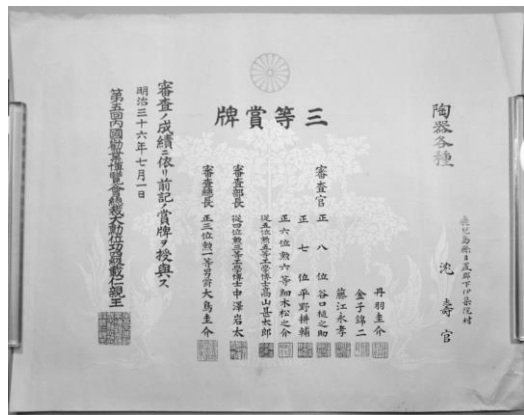 陶器各種
鹿児島縣日置郡下伊集院村
沈壽官
三等賞牌
丹羽圭介
金子錦二
藤江永孝
審査官 正八位 谷口植之助
正七位 平野耕輔
正六位勲六等 細木松之介
從五位勲五等工學博士 高山甚太郎
審査部長 從四位勲三等工學博士 中澤岩太
審査總長 正三位勲一等男爵 大鳥圭介
審査ノ成績ニ依リ前記ノ賞牌ヲ授與ス
明治三十六年七月一日
第五回内國勸業博覽會總裁大勲位功四級載仁親王